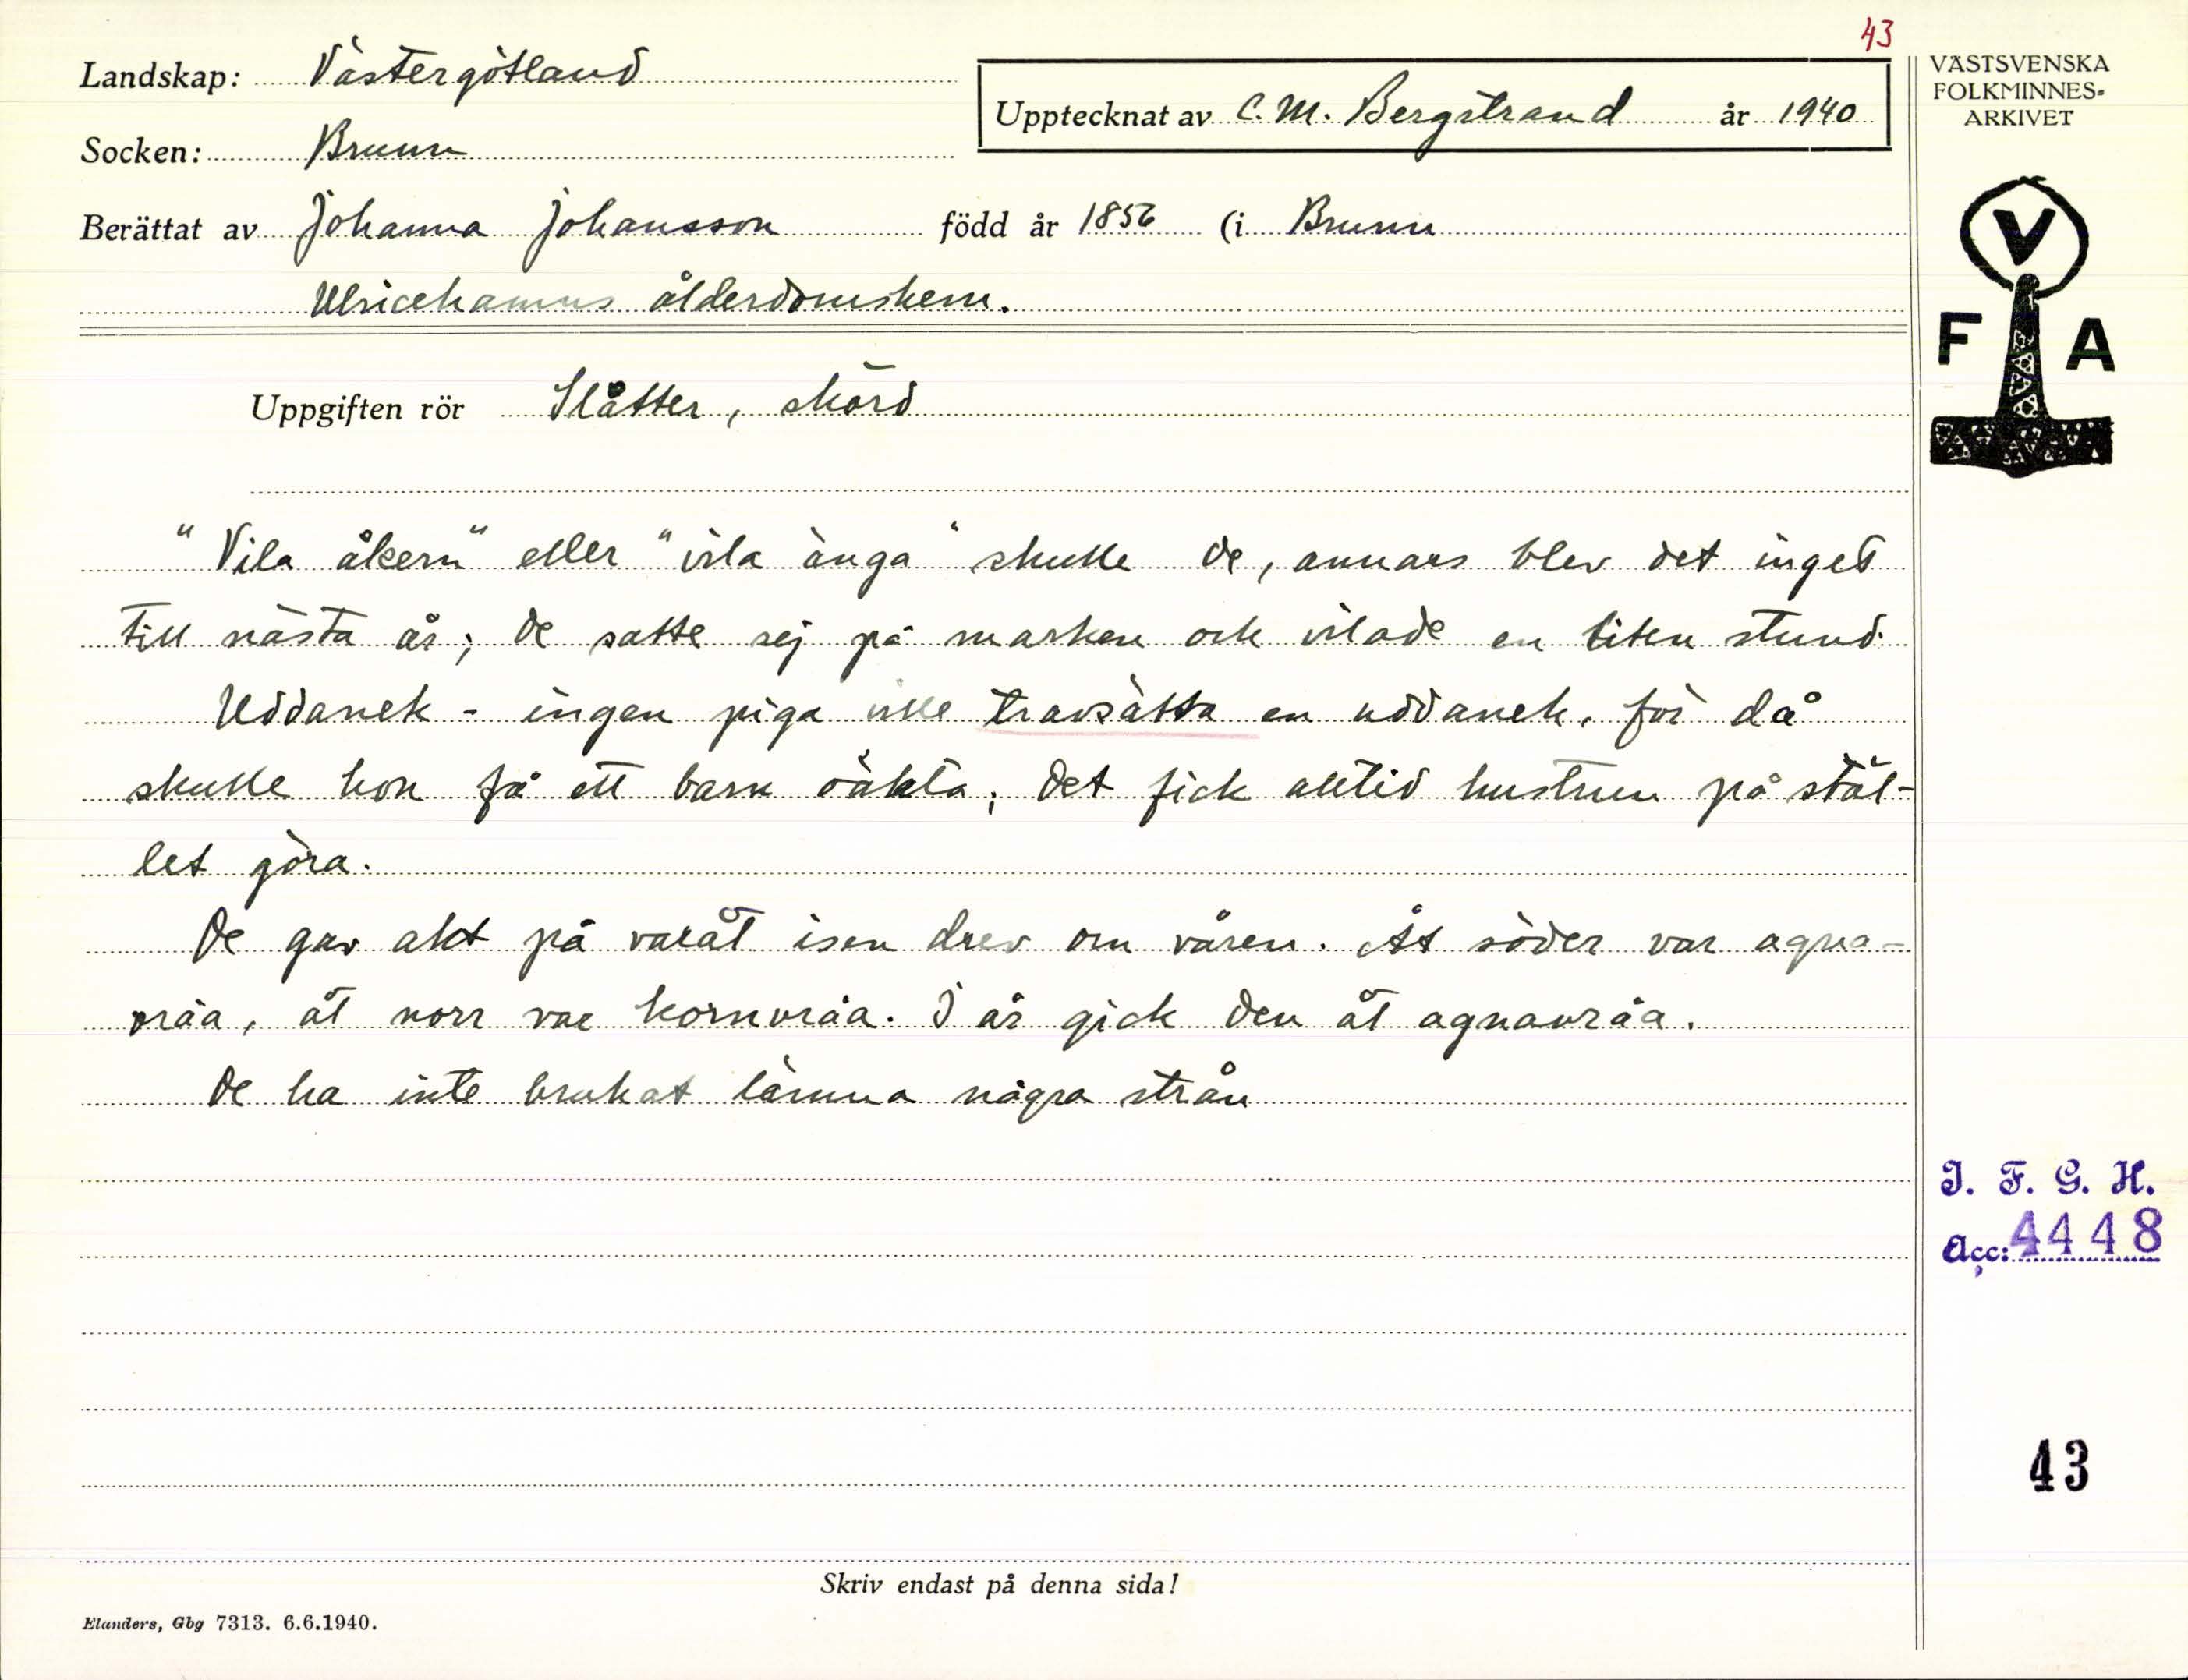 43
Landskap: Västergötland
Upptecknat av C. M. Bergstrand år 1940
VÄSTSVENSKA
FOLKMINNES-
ARKIVET
Socken: Brunn
Berättat av Johanna Johansson född år 1856 (i Brunn
Ulricehamns ålderdomshem.
V
F A
Uppgiften rör Slåtter, skörd
"Vila åkern" eller "vila änga" skulle de, annars blev det inget
till nästa år; de satte sej på marken och vilade en liten stund.
Uddanek - ingen piga ville travsätta en uddanek, för då
skulle hon få ett barn oäkta; det fick alltid hustrun på stäl-
let göra.
De gav akt på varåt isen drev om våren. Åt söder var agna-
vråa, åt norr var kornvråa. I år gick den åt agnavråa.
De ha inte brukat lämna några strån
I. F. G. H.
Acc: 4448
43
Skriv endast på denna sida!
Elanders, Gbg 7313. 6.6.1940.